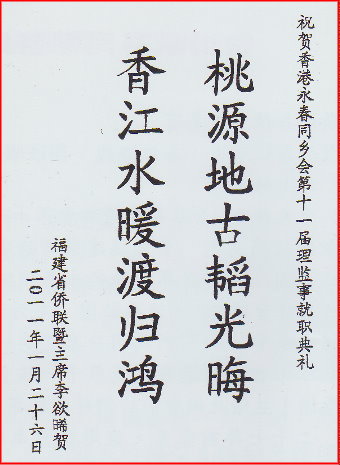 祝贺香港永春同乡会第十一届理监事就职典礼
桃源地古韬光晦
香江水暖渡归鸿
福建省侨联暨主席李欲晞贺
二〇一一年一月二十六日